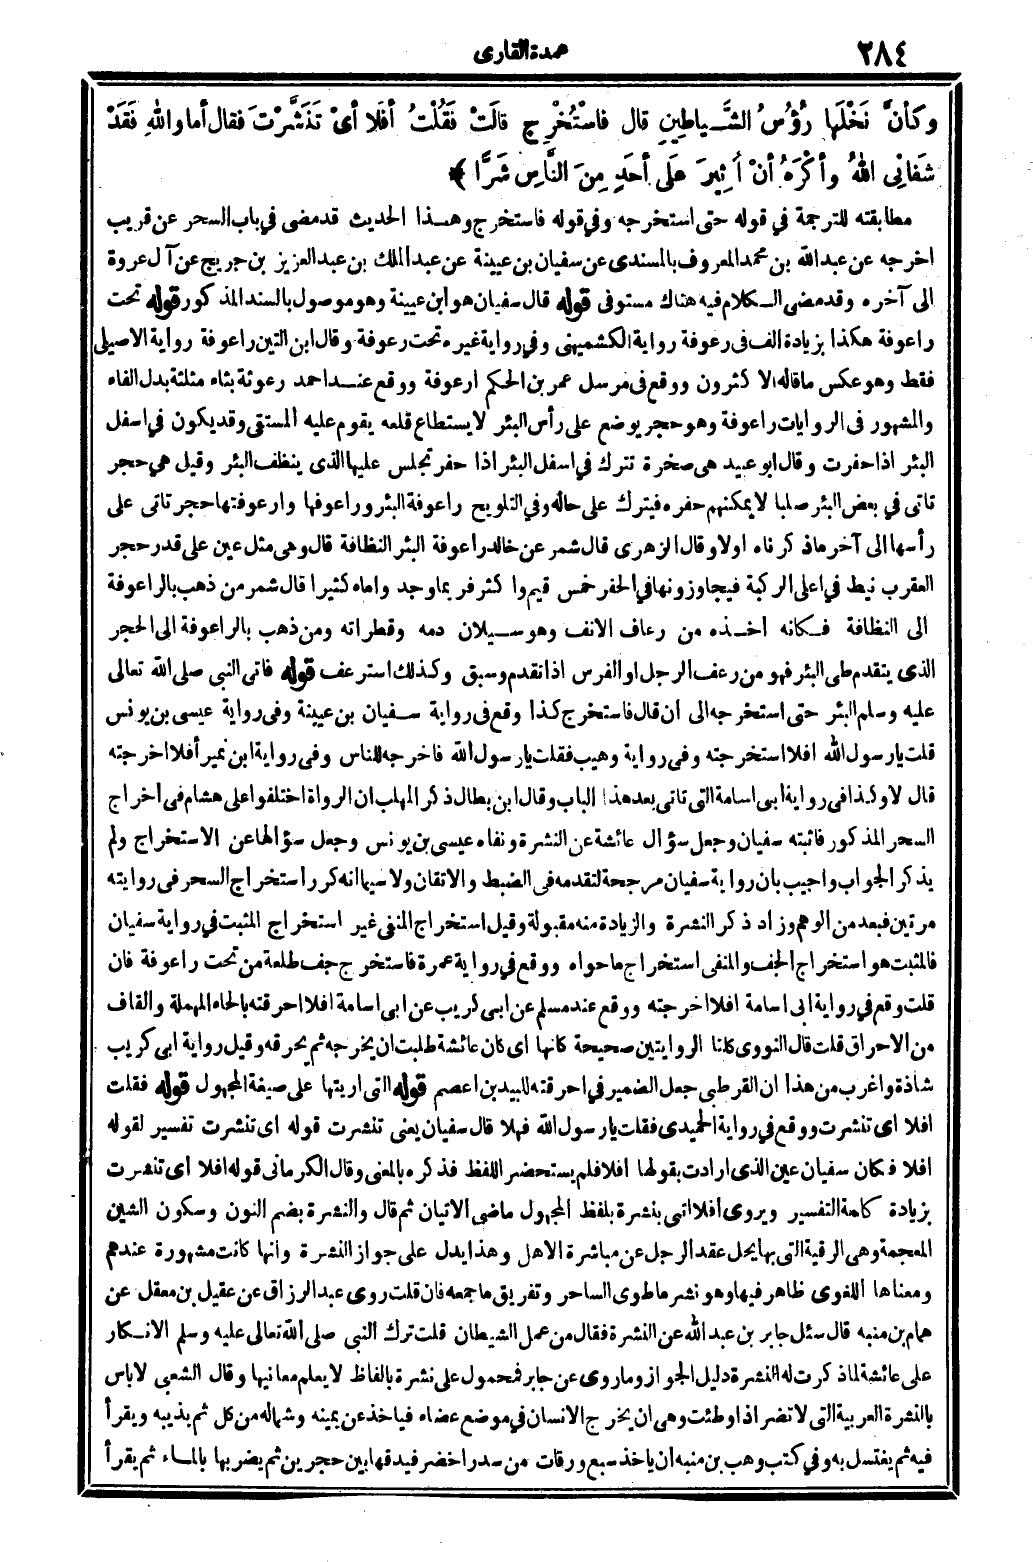 ٢٨٤
عمدة القارى
وكأنَّ نَخْلَها رُؤُسُ الشَّياطِينِ قال فاسْتُخْرِجَ قالَتْ فَقُلْتُ أفَلا أىْ تَنَشَّرْتَ فقال أما واللهِ فَقَدْ
شَفانِى اللهُ وأكْرَهُ أنْ أُثِيرَ عَلَى أحَدٍ مِنَ النَّاسِ شَرًّا ﴾
مطابقته للترجمة في قوله حتى استخرجه وفي قوله فاستخرج وهذا الحديث قدمضى في باب السحر عن قريب
اخرجه عن عبدالله بن محمد المعروف بالمسندى عن سفيان بن عيينة عن عبدالملك بن عبدالعزيز بن جريج عن آل عروة
الى آخره وقدمضى الكلام فيه هناك مستوفى قوله قال سفيان هوابن عيينة وهوموصول بالسند المذكور قوله تحت
راعوفة هكذا بزيادة الف في رعوفة رواية الكشميهنى وفي رواية غيره تحت رعوفة وقال ابن التين راعوفة رواية الاصيلى
فقط وهوعكس ماقاله الاكثرون ووقع في مرسل عمر بن الحكم ارعوفة ووقع عنداحمد رعوثة بثاء مثلثة بدل الفاء
والمشهور في الروايات راعوفة وهو حجر يوضع على رأس البئر لايستطاع قلعه يقوم عليه المستقى وقديكون في اسفل
البئر اذاحفرت وقال ابوعبيد هى صخرة تترك في اسفل البئر اذا حفر تجلس عليها الذى ينظف البئر وقيل هي حجر
تاتى في بعض البئر صلبا لايمكنهم حفره فيترك على حاله وفي التلويح راعوفة البئر وراعوفها وارعوفتها حجر تاتى على
رأسها الى آخر ماذكرناه اولا وقال الزهرى قال شمر عن خالد راعوفة البئر النظافة قال وهى مثل عين على قدر حجر
العقرب نيط في اعلى الركية فيجاوزونها في الحفر خمس قيم وا كثر فربما وجد واماء كثيرا قال شمر من ذهب بالراعوفة
الى النظافة فكانه اخذه من رعاف الانف وهو سيلان دمه وقطراته ومن ذهب بالراعوفة الى الحجر
الذى يتقدم طى البئر فهو من رعف الرجل او الفرس اذا تقدم وسبق وكذلك استرعف قوله فاتى النبى صلى الله تعالى
عليه وسلم البئر حتى استخرجه الى ان قال فاستخرج كذا وقع في رواية سفيان بن عيينة وفي رواية عيسى بن يونس
قلت يارسول الله افلا استخرجته وفي رواية وهيب فقلت يارسول الله فاخرجه للناس وفي رواية ابن نمير أفلا اخرجته
قال لا وكذا في رواية ابى اسامة التى تاتى بعد هذا الباب وقال ابن بطال ذكر المهلب ان الرواة اختلفوا على هشام في اخراج
السحر المذكور فاثبته سفيان وجعل سؤال عائشة عن النشرة ونفاه عيسى بن يونس وجعل سؤالها عن الاستخراج ولم
يذكر الجواب واجيب بان رواية سفيان مرجحة لتقدمه في الضبط والاتقان ولاسيما انه كرر استخراج السحر في روايته
مرتين فبعد من الوهم وزاد ذكر النشرة والزيادة منه مقبولة وقيل استخراج المنفى غير استخراج المثبت في رواية سفيان
فالمثبت هو استخراج الجف والمنفى استخراج ماحواه ووقع في رواية عمرة فاستخرج جف طلعة من تحت راعوفة فان
قلت وقع في رواية ابى اسامة افلا اخرجته ووقع عندمسلم عن ابى كريب عن ابى اسامة افلا احرقته بالحاء المهملة والقاف
من الاحراق قلت قال النووى كلتا الروايتين صحيحة كانها اى كان عائشة طلبت ان يخرجه ثم يحرقه وقيل رواية ابى كريب
شاذة واغرب من هذا ان القرطبى جعل الضمير في احرقته للبيد بن اعصم قوله التى اريتها على صيغة المجهول قوله فقلت
افلا اى تنشرت ووقع في رواية الحميدى فقلت يارسول الله فهلا قال سفيان يعنى تنشرت قوله اى تنشرت تفسير لقوله
افلا فكان سفيان عين الذى ارادت بقولها افلا فلم يستحضر اللفظ فذكره بالمعنى وقال الكرمانى قوله افلا اى تنشرت
بزيادة كلمة التفسير ويروى أفلا اتى بنشرة بلفظ المجهول ماضى الاتيان ثم قال والنشرة بضم النون وسكون الشين
المعجمة وهى الرقية التى بها يحل عقد الرجل عن مباشرة الاهل وهذا يدل على جواز النشرة وانها كانت مشهورة عندهم
ومعناها اللغوى ظاهر فيها وهو نشر ماطوى الساحر وتفريق ماجمعه فان قلت روى عبدالرزاق عن عقيل بن معقل عن
همام بن منبه قال سئل جابر بن عبدالله عن النشرة فقال من عمل الشيطان قلت ترك النبى صلى الله تعالى عليه وسلم الانكار
على عائشة لما ذكرت له النشرة دليل الجواز وما روى عن جابر فمحمول على نشرة بالفاظ لايعلم معانيها وقال الشعبى لاباس
بالنشرة العربية التى لاتضر اذا وطئت وهى ان يخرج الانسان في موضع عضاه فياخذ عن يمينه وشماله من كل ثم يذيبه ويقرأ
فيه ثم يغتسل به وفي كتب وهب بن منبه ان ياخذ سبع ورقات من سدر اخضر فيدقها بين حجرين ثم يضربها بالماء ثم يقرأ